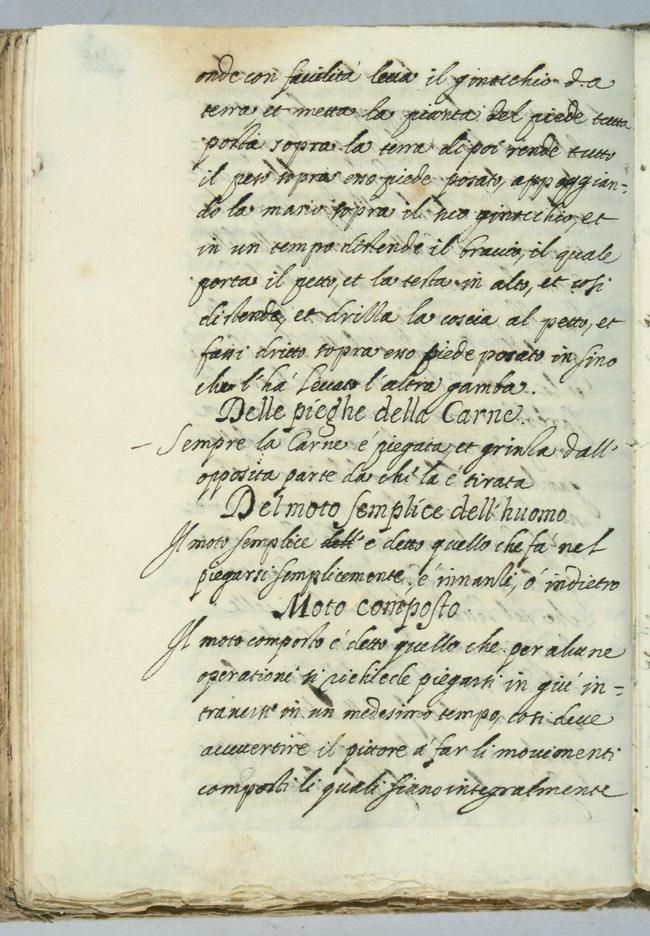 onde con facilità leua il ginocchio da
terra et mette la pianta del piede tutta
posta sopra la terra di poi rende tutto
il peso sopra esso piede posato, appoggian=
do la mano sopra il suo ginocchio, et
in un tempo distende il braccio, il quale
porta il petto, et la testa in alto, et cosi
distende, et drilla la coscia al petto, et
fassi dritto sopra esso piede posato in sino
che l'hà leuato l'altra gamba.
Delle pieghe della Carne.
– Sempre la Carne é piegata, et grinla dall'
opposita parte da chi la é tirata
Del moto semplice dell'huomo
Il moto semplice dell' é detto quello che fá nel
piegarsi semplicemente, é innanli, ó indietro
Moto composto
Il moto composto é detto quello che per alcune
operationi si richiede piegarsi in giú in=
trauerso in un medesimo tempo, cosi deue
auuertire il pittore á far li mouimenti
composti li quali siano integralmente